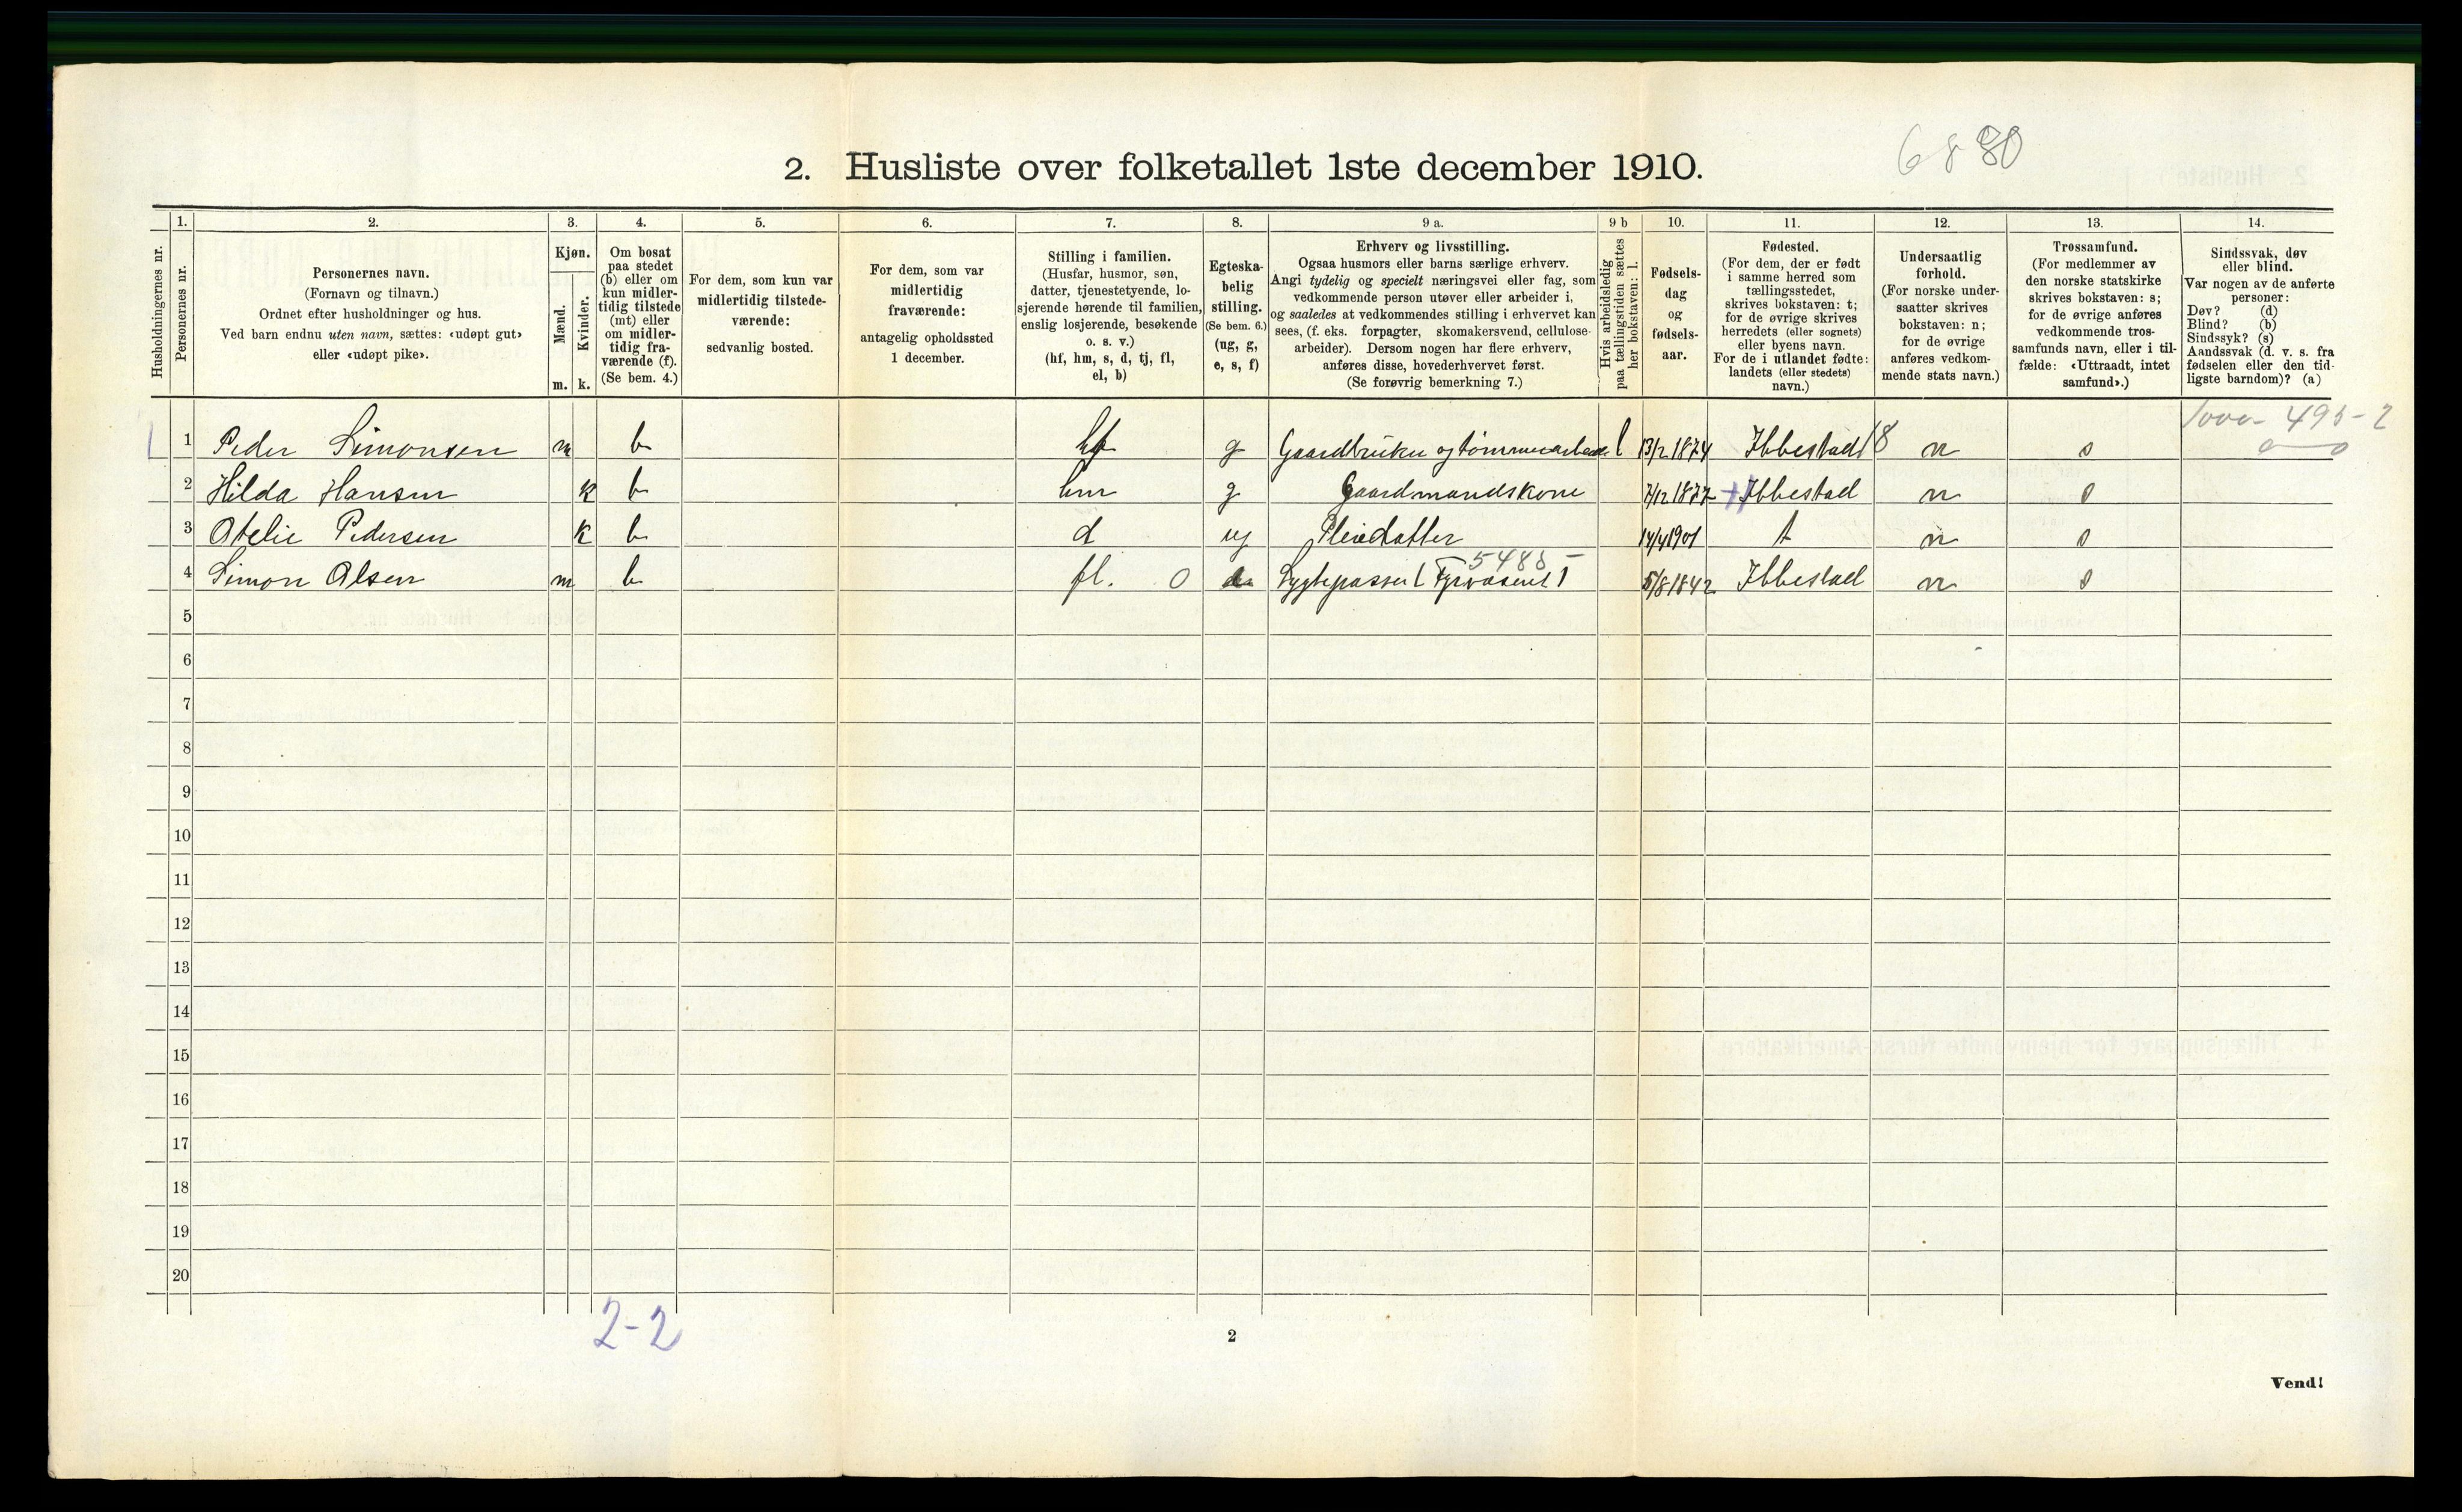 6880
2. Husliste over folketallet 1ste december 1910.
Husholdningernes nr.
1.
Personernes nr.
2.
Personernes navn.
(Fornavn og tilnavn.)
Ordnet efter husholdninger og hus.
Ved barn endnu uten navn, sættes: «udøpt gut»
eller «udøpt pike».
3.
Kjøn.
Mænd.
Kvinder.
m. k.
4.
Om bosat
paa stedet
(b) eller om
kun midler-
tidig tilstede
(mt) eller
om midler-
tidig fra-
værende (f).
(Se bem. 4.)
5.
For dem, som kun var
midlertidig tilstede-
værende:
sedvanlig bosted.
6.
For dem, som var
midlertidig
fraværende:
antagelig opholdssted
1 december.
7.
Stilling i familien.
(Husfar, husmor, søn,
datter, tjenestetyende, lo-
sjerende hørende til familien,
enslig losjerende, besøkende
o. s. v.)
(hf, hm, s, d, tj, fl,
el, b)
8.
Egteska-
belig
stilling.
(Se bem. 6.)
(ug, g,
e, s, f)
9 a.
Erhverv og livsstilling.
Ogsaa husmors eller barns særlige erhverv.
Angi tydelig og specielt næringsvei eller fag, som
vedkommende person utøver eller arbeider i,
og saaledes at vedkommendes stilling i erhvervet kan
sees, (f. eks. forpagter, skomakersvend, cellulose-
arbeider). Dersom nogen har flere erhverv,
anføres disse, hovederhvervet først.
(Se forøvrig bemerkning 7.)
9 b
Hvis arbeidsledig
paa tællingstiden sættes
her bokstaven: l.
10.
Fødsels-
dag
og
fødsels-
aar.
11.
Fødested.
(For dem, der er født
i samme herred som
tællingsstedet,
skrives bokstaven: t;
for de øvrige skrives
herredets (eller sognets)
eller byens navn.
For de i utlandet fødte:
landets (eller stedets)
navn.)
12.
Undersaatlig
forhold.
(For norske under-
saatter skrives
bokstaven: n;
for de øvrige
anføres vedkom-
mende stats navn.)
13.
Trossamfund.
(For medlemmer av
den norske statskirke
skrives bokstaven: s;
for de øvrige anføres
vedkommende tros-
samfunds navn, eller i til-
fælde: «Uttraadt, intet
samfund».)
14.
Sindssvak, døv
eller blind.
Var nogen av de anførte
personer:
Døv? (d)
Blind? (b)
Sindssyk? (s)
Aandssvak (d. v. s. fra
fødselen eller den tid-
ligste barndom)? (a)
495-2
0 0
1 Peder Simonsen m b hf g Gaardbruker og tømmerarbeid. l 13/2 1874 Ibbestad 18 n s
2 Hilda Hansen k b hm g Gaardmandskone 7/12 1877 Ibbestad n s
3 Atelie Pedersen k b d ug Pleiedatter 14/4 1901 t n s
5488
4 Simon Olsen m b fl. 0 Lygtepasser (Fyrvæsenet) 5/8 1842 Ibbestad n s
5
6
7
8
9
10
11
12
13
14
15
16
17
18
19
20
2-2
2
Vend!